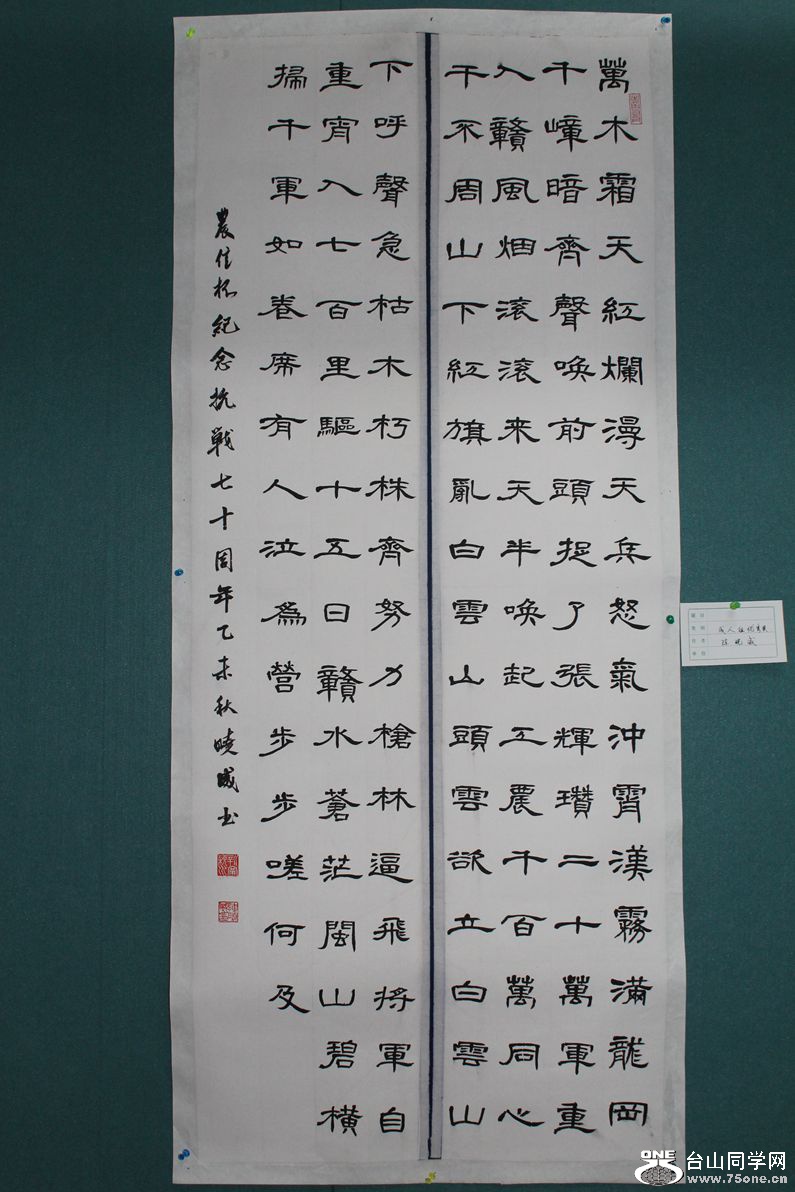 萬木霜天紅爛漫天兵怒氣沖霄漢霧滿龍岡
千嶂暗齊聲喚前頭捉了張輝瓚二十萬軍重
入贛風烟滾滾来天半喚起工農千百萬同心
干不周山下紅旗亂白雲山頭雲欲立白雲山
下呼聲急枯木朽株齊努力槍林逼飛將軍自
重宵入七百里驅十五日贛水蒼茫閩山碧橫
掃千軍如卷席有人泣爲營步步嗟何及
農信杯紀念抗戰七十周年乙未秋曉威书
成人组优秀奖
ONE
台山同学网
www.75one.cn